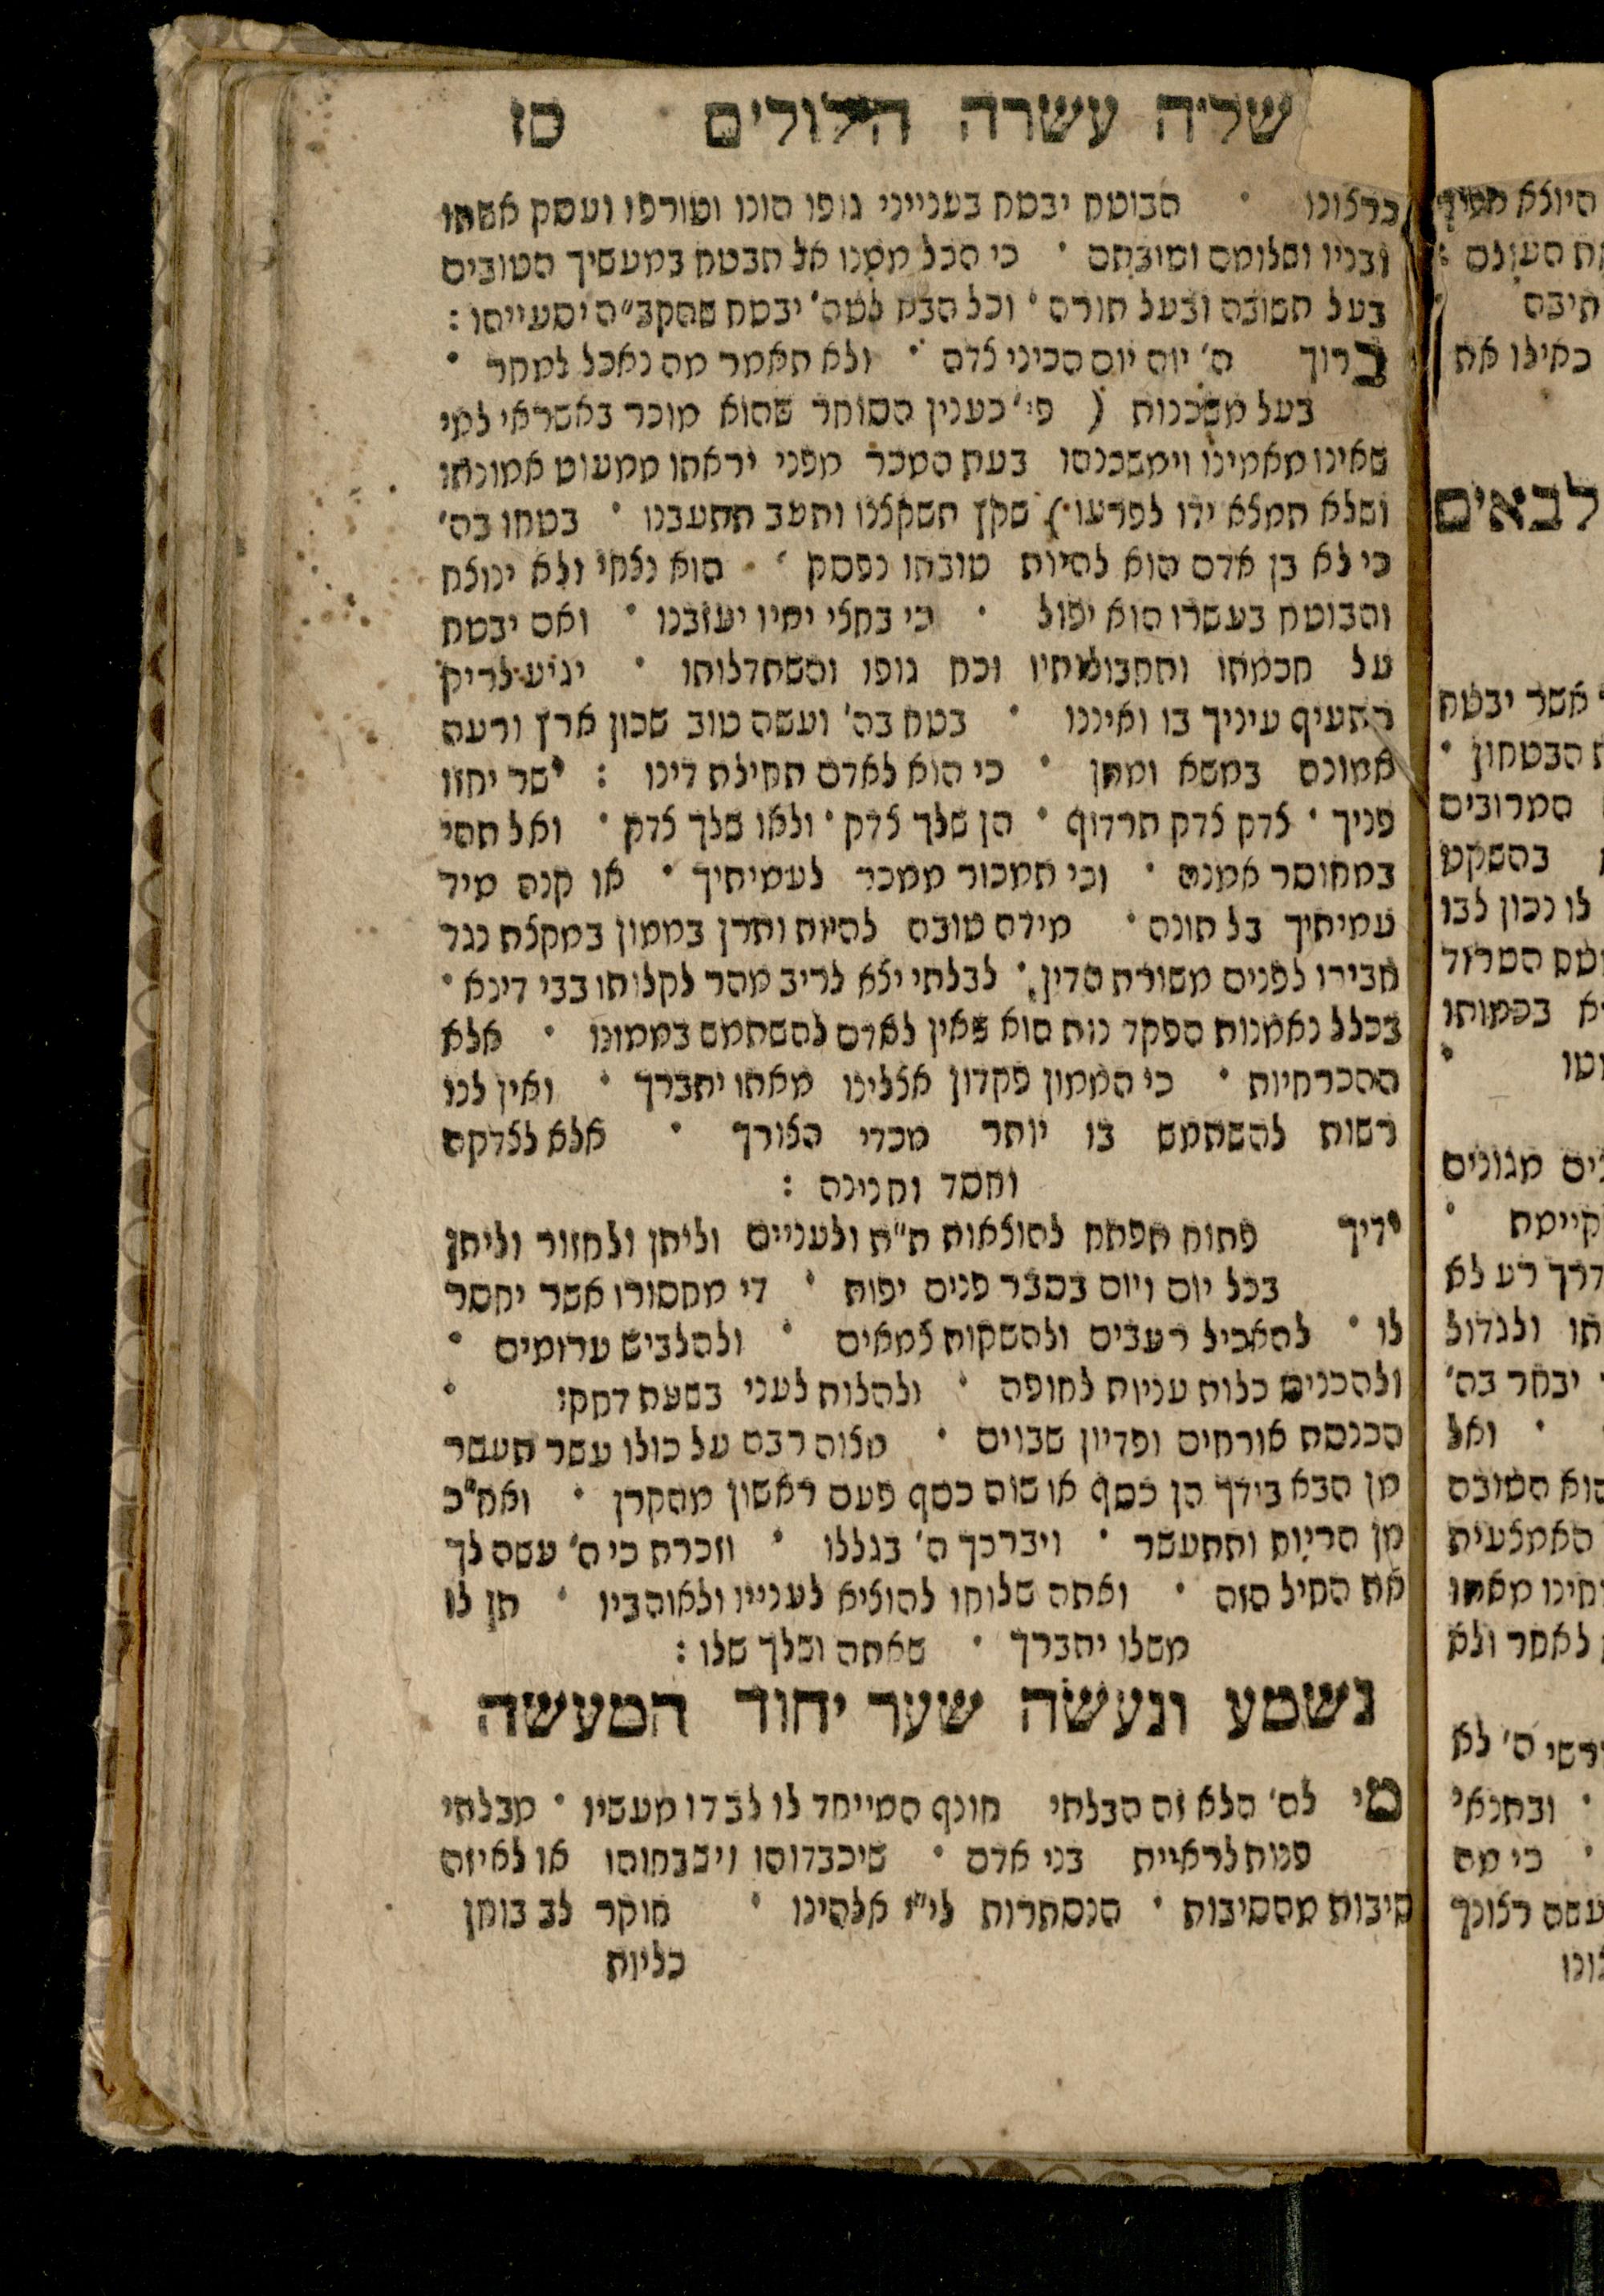 של"ה עשרה הלולים כז
כרצונו · הבוטח יבטח בענייני גופו הונו וטורפו ועסק אשתו
ובניו ושלומם וטובתם · כי הכל ממנו אל תבטח במעשיך הטובים
בעל תשובה ובעל תורה · וכל הבא לטה' יבטח שהקב"ה יסעייהו :
ברוך ה' יום יום הכיני לדם · ולא תאמר מה נאכל למחר ·
בעל משכנות ( פי' כענין הסוחר שהוא מוכר באשראי למי
שאינו מאמינו וימשכנהו בעת המכר מפני יראתו ממעוט אמונתו
ושלא תמצא ידו לפרעו ) שקץ תשקצנו ותעב תתעבנו · בטחו בה'
כי לא בן אדם הוא להיות טובתו נפסק · הוא נצחי ולא ינוצח
והבוטח בעשרו הוא יפול · כי בחצי ימיו יעזבנו · ואם יבטח
על חכמתו ותחבולתיו וכח גופו והשתדלותו · יגיע לריק
התעיף עיניך בו ואיננו · בטח בה' ועשה טוב שכון ארץ ורעה
אמונה במשא ומתן · כי הוא לאדם תחילת דינו : ישר יחזו
פניך · צדק צדק תרדוף · הן שלך צדק · ולאו שלך צדק · ואל תהי
במחוסר אמנה · וכי תמכור ממכר לעמיתיך · או קנה מיד
עמיתיך בל תונה · מידה טובה להיות ותרן בממון במקצת נגד
חבירו לפנים משורת הדין · לבלתי יצא לריב מהר לקלותו בבי דינא ·
בכלל נאמנות הפקד נות הוא שאין לאדם להשתמש בממונו · אלא
ההכרחיות · כי הממון פקדון אצלינו מאתו יתברך · ואין לנו
רשות להשתמש בו יותר מכדי הצורך · אלא לצדקה
וחסד וחנינה :
ידיך פתוח תפתח להוצאות ת"ת ולעניים וליתן ולחזור וליתן
בכל יום ויום בסבר פנים יפות · די מחסורו אשר יחסר
לו · להאכיל רעבים ולהשקות צמאים · ולהלביש ערומים ·
ולהכניס כלות עניות לחופה · ולהלות לעני בשעת דחקו ·
הכנסת אורחים ופדיון שבוים · מצוה רבה על כולו עשר תעשר
מן הבא בידך הן כסף או שוה כסף פעם ראשון מהקרן · ואח"כ
מן הריוח ותתעשר · ויברכך ה' בגללו · וזכרת כי ה' עשה לך
את החיל הזה · ואתה שלוחו להוציא לענייו ולאוהביו · תן לו
משלו יתברך · שאתה ושלך שלו :
נשמע ונעשה שער יחוד המעשה
מי לה' הלא זה הבלתי חונף המייחד לו לבדו מעשיו · מבלתי
פנות לראיית בני אדם · שיכבדוהו וישבחוהו או לאיזה
סיבות מהסיבות · הנסתרות לי"י אלהינו · חוקר לב בוחן
כליות

היוצא מפיך
את העולם :
חיבה
כאילו את
לבאים
אשר יבטח
הבטחון ·
המרובים
בהשקט
לו נכון לבו
השם הטרוד
בים מגונים
קיימת ·
דרך רע לא
ולגדול
יבחר בה'
· ואל
הוא תשובה
האמצעית
לאחר ולא
ה' לא
· ובתנאי
· כי מה
עשה רצונך